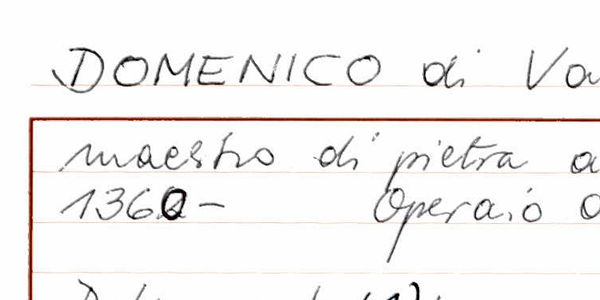 DOMENICO di Va
maestro di pietra a
1360- Operaio o